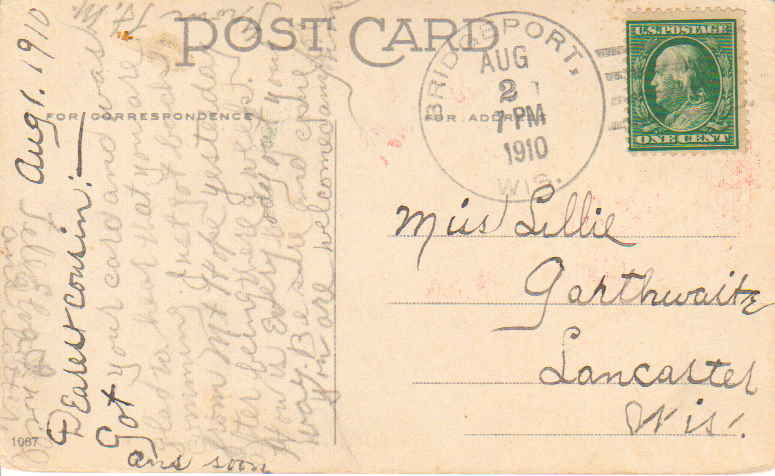 POST CARD
FOR CORRESPONDENCE
FOR ADDRESS
BRIDGEPORT,
AUG
2
7 PM
1910
WIS.
U.S. POSTAGE
ONE CENT
Miss Lillie
Garthwaite
Lancaster
Wis.
Aug 1. 1910
Dearest cousin:—
Got your card and was
glad to hear that you are
coming I just got back
from Mt Hope yesterday
after being there 2 weeks
How is everybody out your
way. Be sure and come
you are welcome
and soon
1067